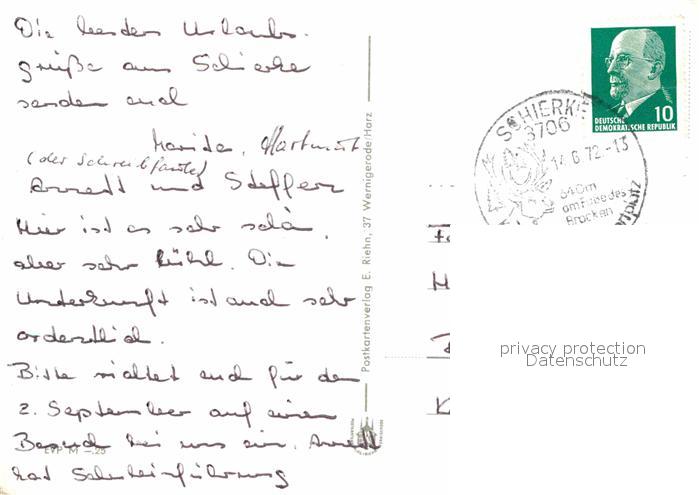 Die besten Urlaubs-
grüße aus Schierke
senden euch
Marida, Hartmut
(der Schreibfaule)
Annett und Steffen
Hier ist es sehr schön,
aber sehr kühl. Die
Unterkunft ist auch sehr
ordentlich.
Bitte richtet euch für den
2. September auf einen
Besuch bei uns ein. Annett
hat Schuleinführung
EVP M -.25
Postkartenverlag E. Riehn, 37 Wernigerode/Harz
10
DEUTSCHE
DEMOKRATISCHE REPUBLIK
SCHIERKE
3706
14.6.72-13
640m
am Fuße des
Brocken
privacy protection
Datenschutz